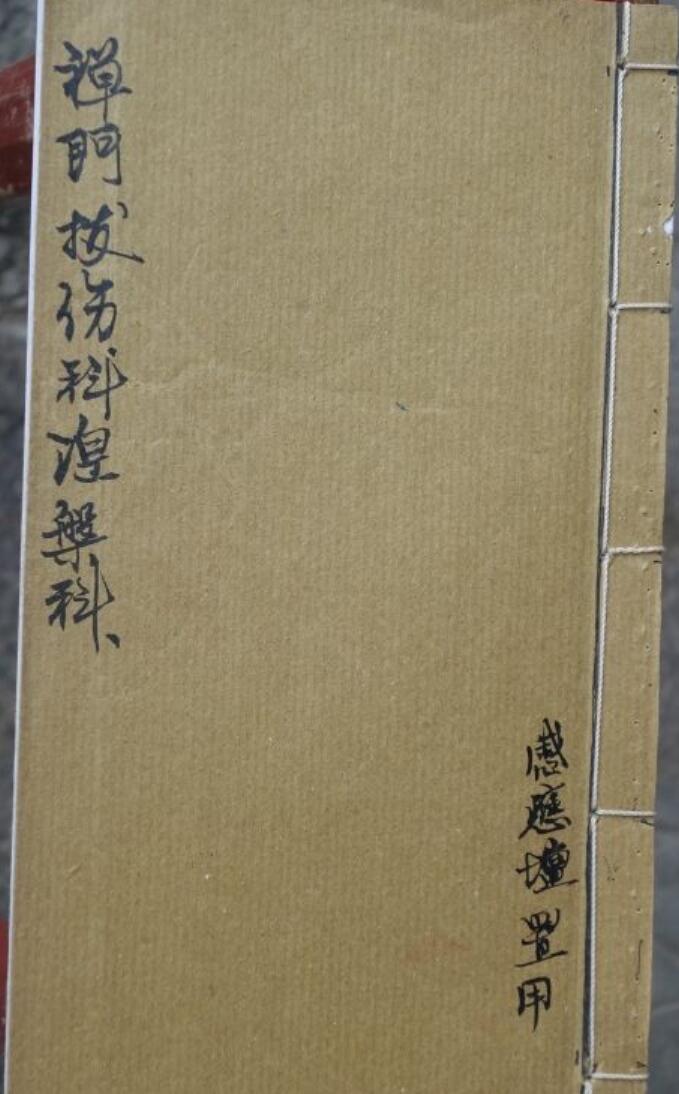 禅門拔伤科涅槃科、
感應壇置用